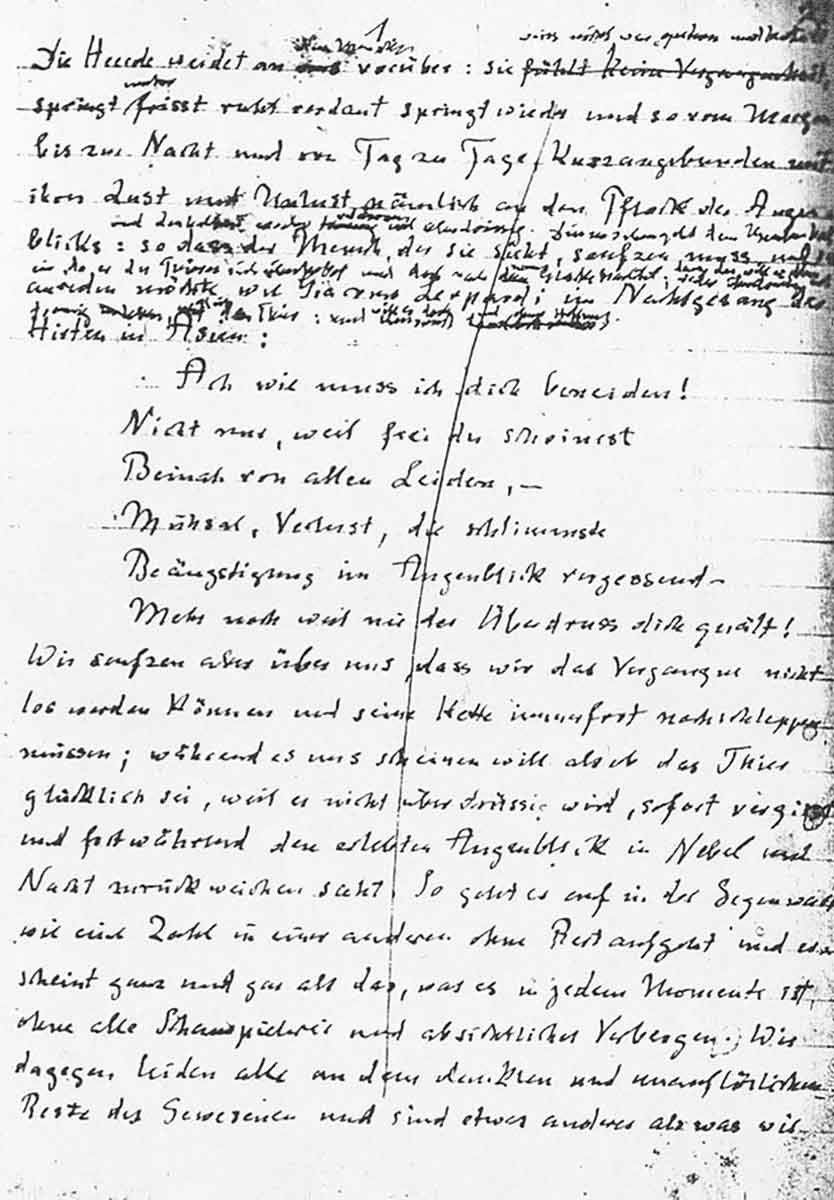 1
weiss nicht was gestern und heute
Die Heerde weidet an uns vorüber : sie fühlt keine Vergangenheit,
springt frisst ruht verdaut springt wieder und so vom Morgen
bis zur Nacht und von Tag zu Tage, kurz angebunden mit
ihrer Lust und Unlust nämlich an den Pflock des Augen
blicks : so dass der Mensch, der sie sieht, seufzen muss und
anreden möchte, wie Giacomo Leopardi im Nachtgesang des
Hirten in Asien :
Ach wie muss ich dich beneiden!
Nicht nur, weil frei du scheinest
Beinah von allen Leiden, —
Mühsal, Verlust, die schlimmste
Beängstigung im Augenblick vergessend —
Mehr noch weil nie der Überdruss dich quält!
Wir seufzen aber über uns, dass wir das Vergangne nicht
los werden können und seine Kette immerfort nachschleppen
müssen; während es uns scheinen will als ob das Thier
glücklich sei, weil es nicht überdrüssig wird, sofort vergisst
und fortwährend den erlebten Augenblick in Nebel und
Nacht zurückweichen sieht. So geht es auf in der Gegenwart
wie eine Zahl in einer anderen ohne Rest aufgeht und er
scheint ganz und gar als das, was es in jedem Momente ist,
ohne alle Schauspielerei und absichtliches Verbergen. Wir
dagegen leiden alle an dem dunklen und unauflöslichen
Reste des Gewesenen und sind etwas anderes als was wir